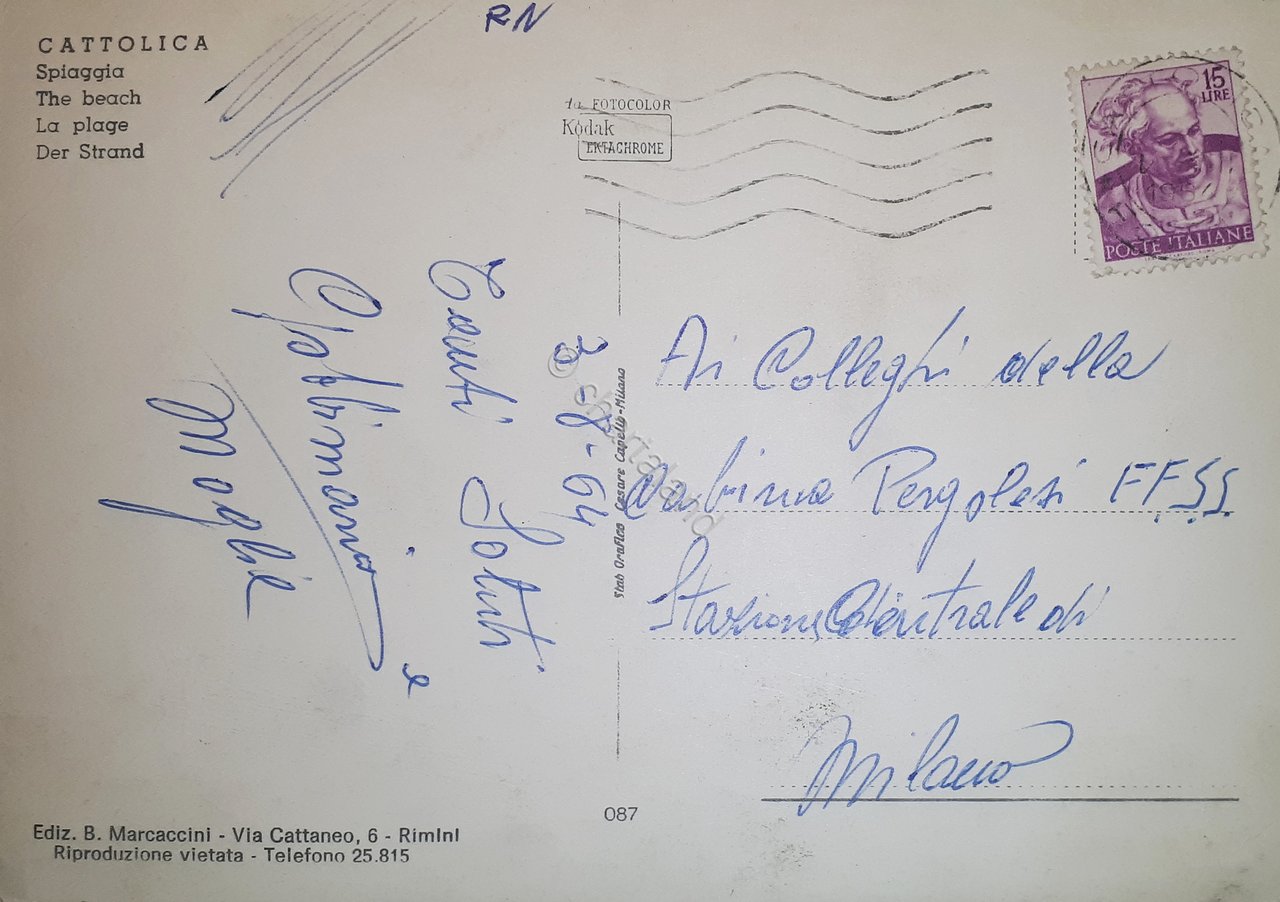 RN
CATTOLICA
Spiaggia
The beach
La plage
Der Strand
da FOTOCOLOR
Kodak
EKTACHROME
15
LIRE
POSTE ITALIANE
3-8-64
Tanti Saluti
e
Moglie
Ai Colleghi della
Cabina Pergolesi FF.SS.
Stazione Centrale di
Milano
Stab Grafico Cesare Capello-Milano
© shartaland
087
Ediz. B. Marcaccini - Via Cattaneo, 6 - Rimini
Riproduzione vietata - Telefono 25.815